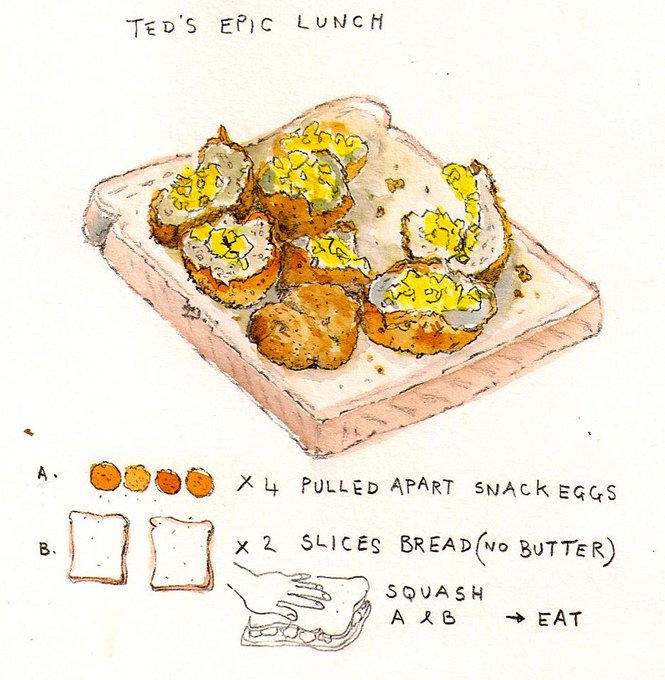 TED'S EPIC LUNCH
A. X 4 PULLED APART SNACK EGGS
B. X 2 SLICES BREAD (NO BUTTER)
SQUASH
A & B → EAT